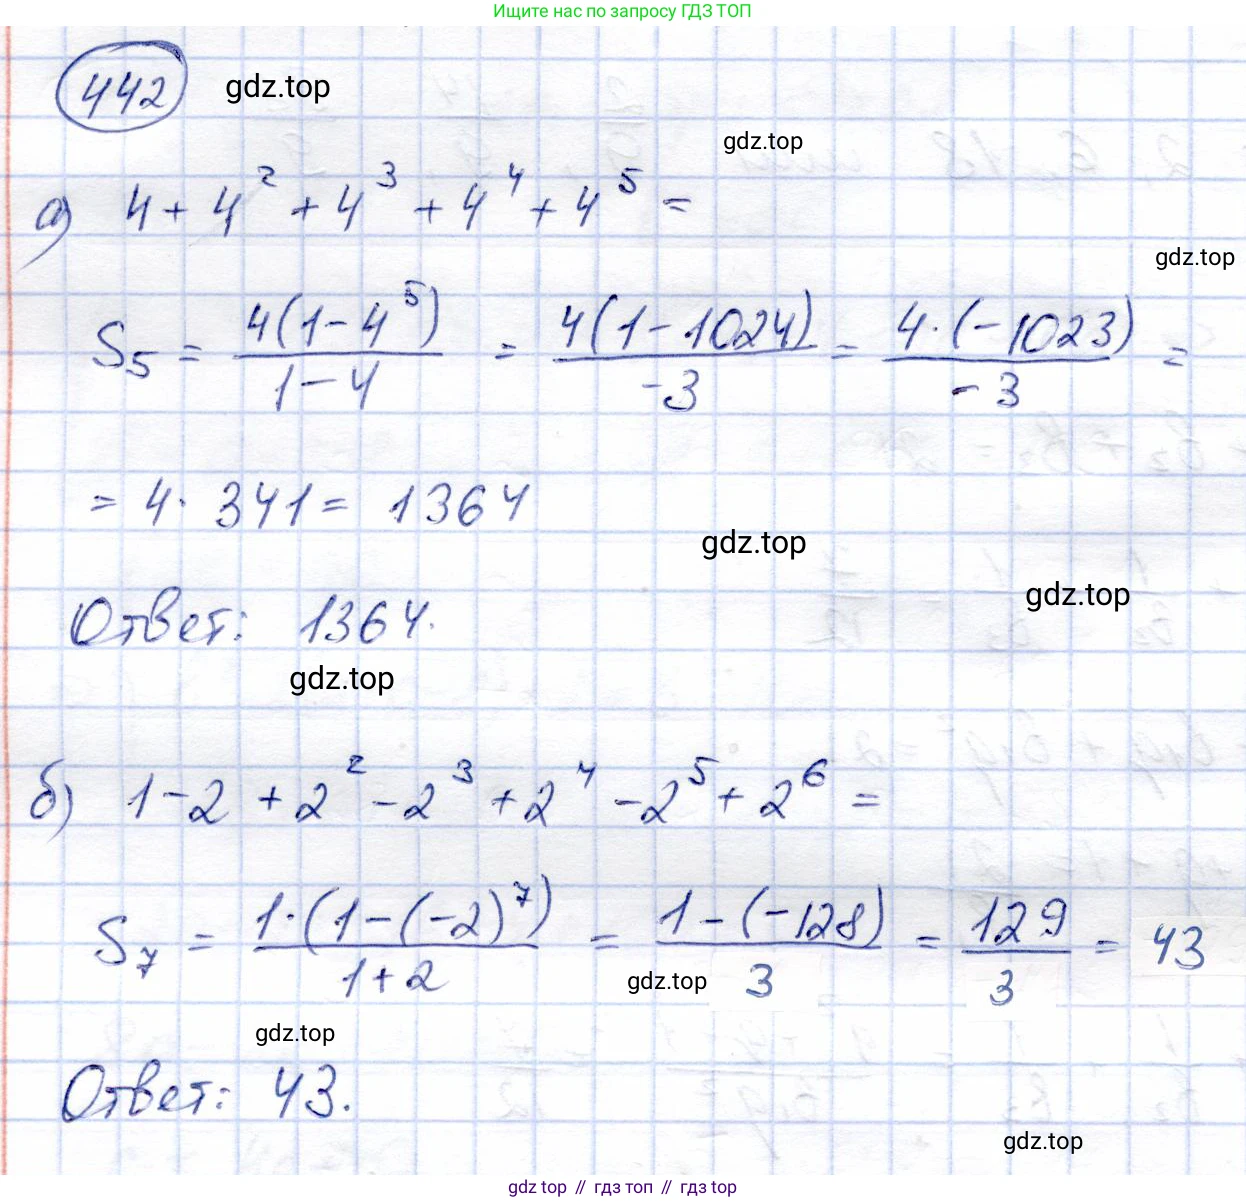 Ищите нас по запросу ГДЗ ТОП
442 gdz.top
gdz.top
а) 4 + 4² + 4³ + 4⁴ + 4⁵ =
gdz.top
S₅ = 4(1 - 4⁵) / (1 - 4) = 4(1 - 1024) / -3 = 4 · (-1023) / -3 =
= 4 · 341 = 1364
gdz.top
gdz.top
Ответ: 1364.
gdz.top
б) 1 - 2 + 2² - 2³ + 2⁴ - 2⁵ + 2⁶ =
S₇ = 1 · (1 - (-2)⁷) / (1 + 2) = 1 - (-128) / 3 = 129 / 3 = 43
gdz.top
gdz.top
Ответ: 43.
gdz.top
gdz top // гдз топ // gdz top